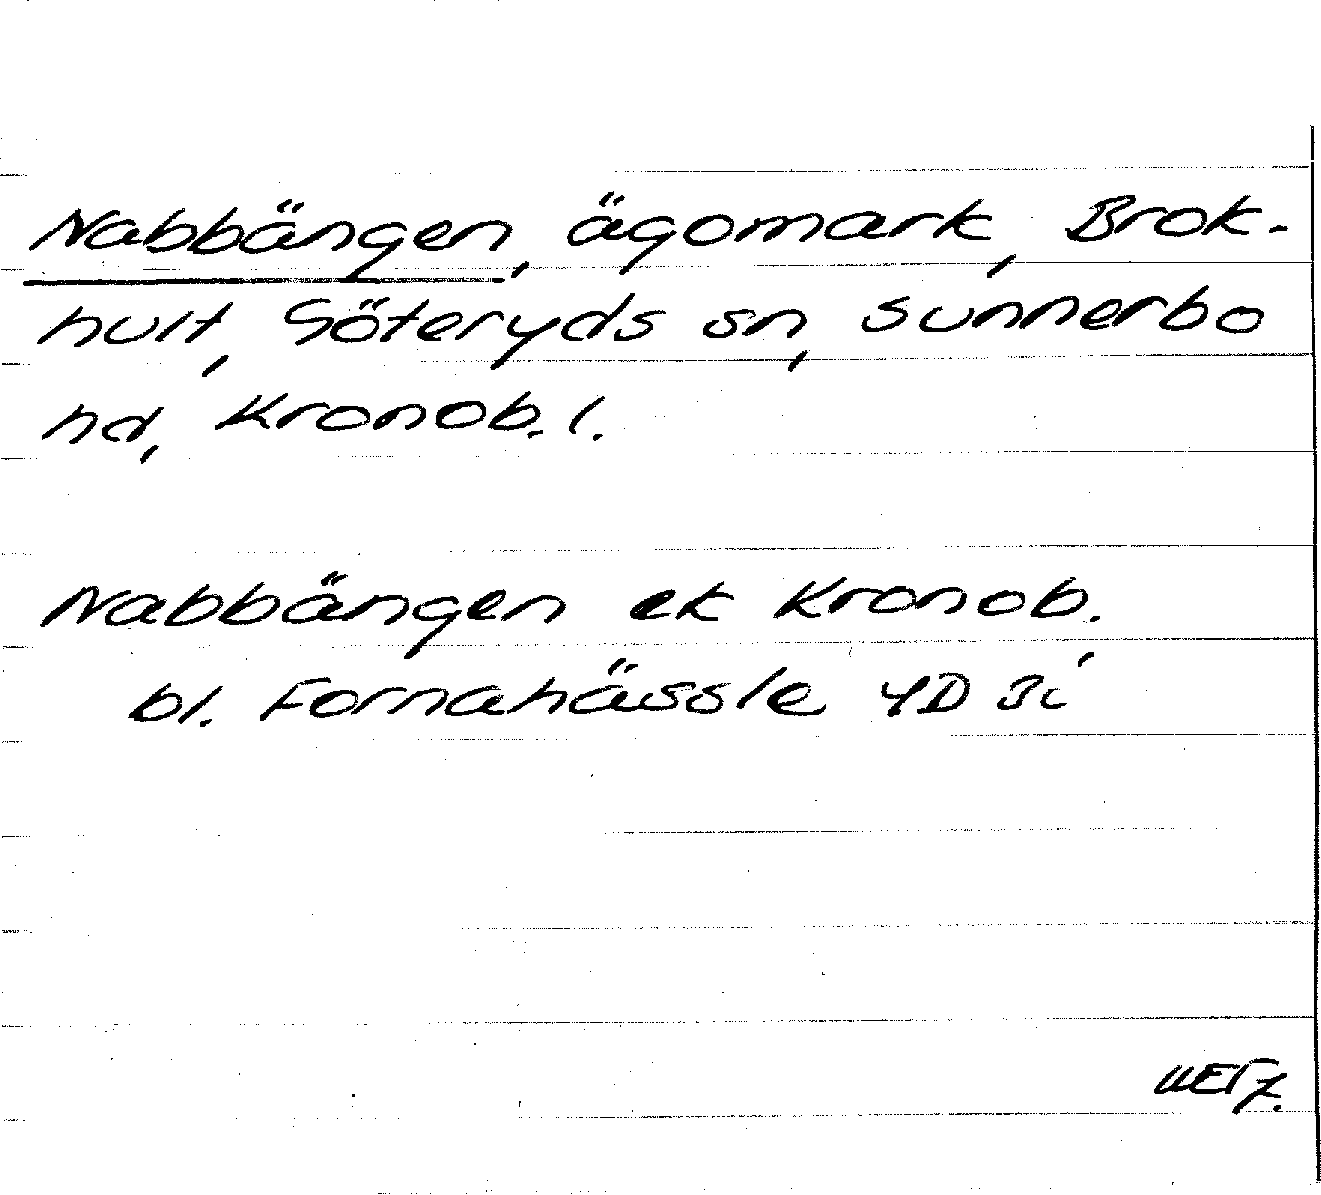 Nabbängen, ägomark, Brok-
hult, Göteryds sn, Sunnerbo
hd, Kronob. l.
Nabbängen ek Kronob.
bl. Fornahässle 4D 3i